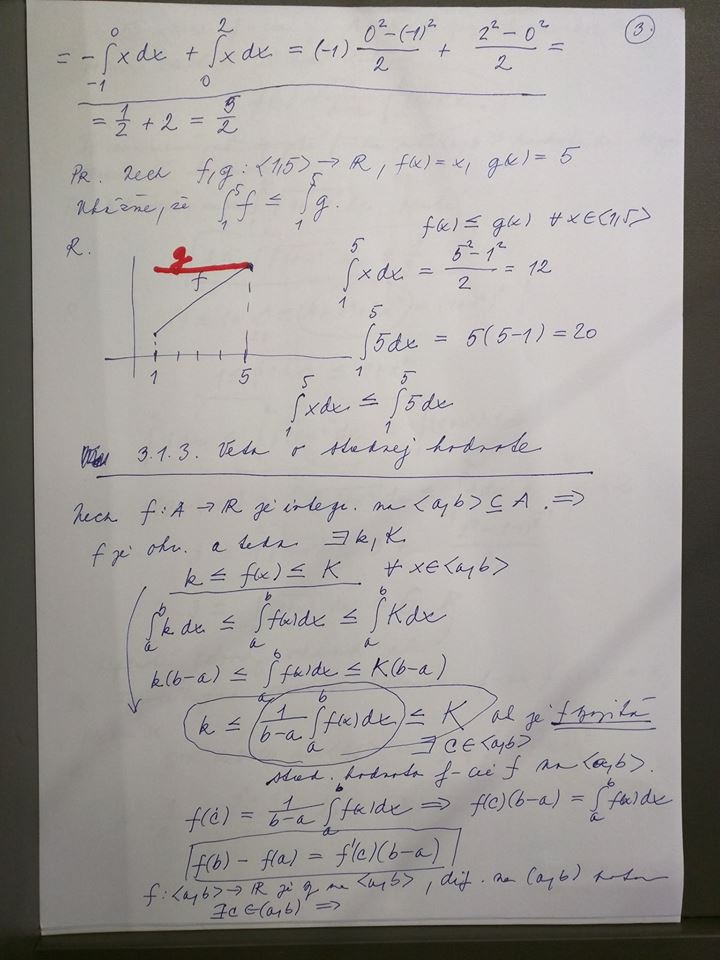 3.
= - ∫_{-1}^{0} x dx + ∫_{0}^{2} x dx = (-1) (0² - (-1)²)/2 + (2² - 0²)/2 =
= 1/2 + 2 = 5/2
Pr. Nech f, g : <1,5> → R, f(x) = x, g(x) = 5
Ukážme, že ∫_{1}^{5} f ≤ ∫_{1}^{5} g.
f(x) ≤ g(x) ∀ x ∈ <1,5>
R.
g
f
1 5
∫_{1}^{5} x dx = (5² - 1²)/2 = 12
∫_{1}^{5} 5 dx = 5(5-1) = 20
∫_{1}^{5} x dx ≤ ∫_{1}^{5} 5 dx
3.1.3. Veta o strednej hodnote
Nech f : A → R je integr. na <a,b> ⊆ A. ⇒
f je ohr. a teda ∃ k, K.
k ≤ f(x) ≤ K ∀ x ∈ <a,b>
∫_{a}^{b} k dx ≤ ∫_{a}^{b} f(x) dx ≤ ∫_{a}^{b} K dx
k(b-a) ≤ ∫_{a}^{b} f(x) dx ≤ K(b-a)
k ≤ 1/(b-a) ∫_{a}^{b} f(x) dx ≤ K ak je f spojitá
∃ c ∈ <a,b>
stred. hodnota f-cie f na <a,b>.
f(c) = 1/(b-a) ∫_{a}^{b} f(x) dx ⇒ f(c)(b-a) = ∫_{a}^{b} f(x) dx
f(b) - f(a) = f'(c)(b-a)
f : <a,b> → R je na <a,b>, dif. na (a,b) potom
∃ c ∈ (a,b) ⇒